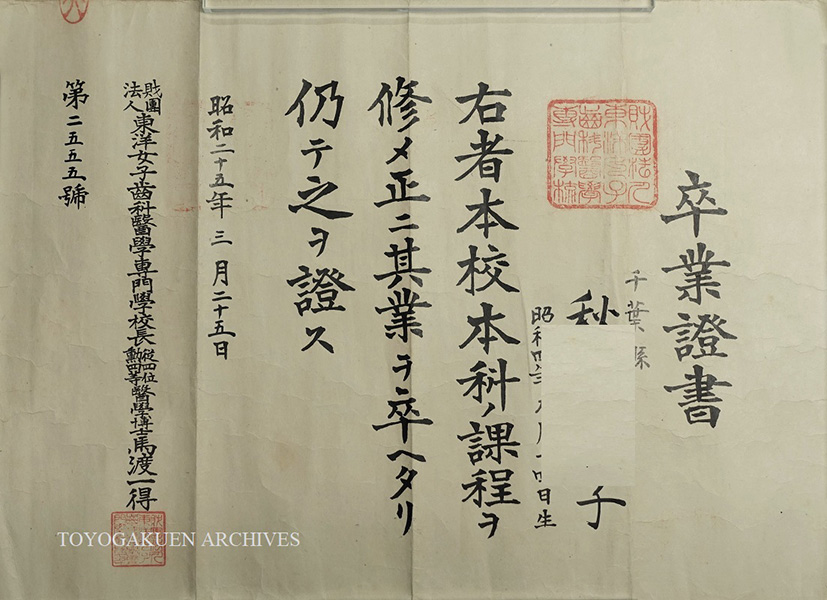 卒業證書
千葉縣
秋
子
日生
右者本校本科ノ課程ヲ
修メ正ニ其業ヲ卒ヘタリ
仍テ之ヲ證ス
昭和二十五年三月二十五日
財團法人東洋女子齒科醫學専門學校長從四位勲四等醫學博士馬渡一得
第二五五五號
財團法人東洋女子齒科醫學專門學校
TOYOGAKUEN ARCHIVES